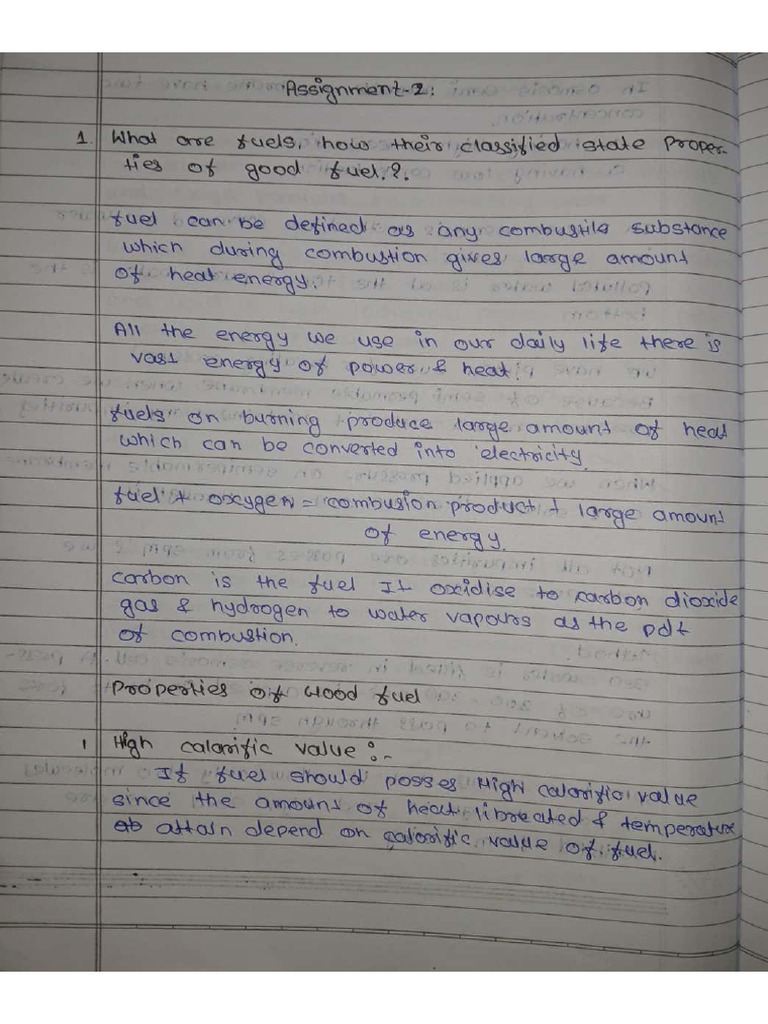 Assignment-2:
1. What are fuels, how their classified state proper-
ties of good fuel.?.
fuel can be defined as any combustile substance
which during combustion gives large amount
of heat energy.
All the energy we use in our daily life there is
vast energy of power & heat.
fuels on burning produce large amount of heat
which can be converted into electricity.
fuel + oxygen = combusion product + large amount
of energy.
carbon is the fuel It oxidise to carbon dioxide
gas & hydrogen to water vapours as the pdt
of combustion.
Properties of Good fuel
1 High calorific value :-
If fuel should posses High calorific value
since the amount of heat libreated & temperature
attain depend on calorific value of fuel.